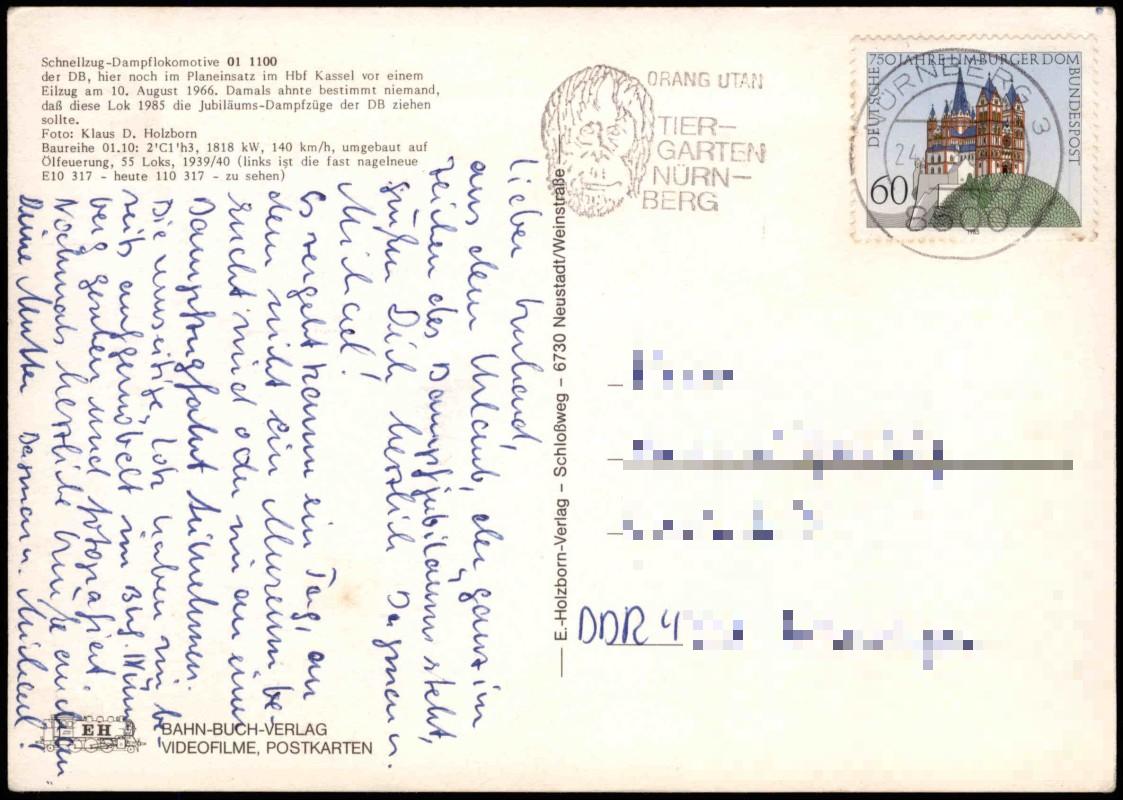 Schnellzug-Dampflokomotive 01 1100
der DB, hier noch im Planeinsatz im Hbf Kassel vor einem
Eilzug am 10. August 1966. Damals ahnte bestimmt niemand,
daß diese Lok 1985 die Jubiläums-Dampfzüge der DB ziehen
sollte.
Foto: Klaus D. Holzborn
Baureihe 01.10: 2'C1'h3, 1818 kW, 140 km/h, umgebaut auf
Ölfeuerung, 55 Loks, 1939/40 (links ist die fast nagelneue
E10 317 - heute 110 317 - zu sehen)
Lieber
aus dem Urlaub, der ganz im
Zeichen des Dampfjubiläums steht,
grüßen Dich herzlich Dagmar u.
Michael!
Es vergeht kaum ein Tag, an
dem nicht ein Museum be-
sucht wird oder wir an einer
Dampfzugfahrt teilnehmen.
Die umseitige Lok haben wir be-
reits aufgemöbelt im Bhf. Nürn-
berg gesehen und fotografiert.
Nochmals herzliche Grüße auch an
Deine Mutter Dagmar u. Michael!
EH
BAHN-BUCH-VERLAG
VIDEOFILME, POSTKARTEN
E.-Holzborn-Verlag – Schloßweg – 6730 Neustadt/Weinstraße
ORANG UTAN
TIER-
GARTEN
NÜRN-
BERG
750 JAHRE LIMBURGER DOM
DEUTSCHE BUNDESPOST
60
1985
NÜRNBERG 3
24
8500
DDR 4